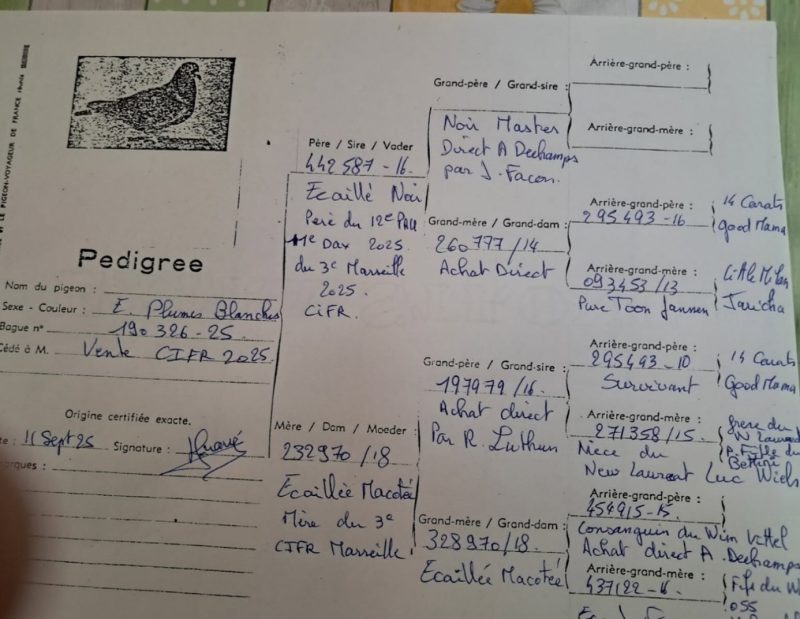 ET LE PIGEON-VOYAGEUR DE FRANCE
Pedigree
Nom du pigeon :
Sexe - Couleur : E. Plumes Blanches
Bague n° 190 326 - 25
Cédé à M. Vente CIFR 2025.
Origine certifiée exacte.
11 Sept 25 Signature :
Père / Sire / Vader
442 587 - 16.
Ecaillé Noir
Père du 12e PAU
Dax 2025
du 3e Marseille
2025.
CIFR.
Mère / Dam / Moeder :
232970 / 18
Ecaillée Macotée
Mère du 3e
CIFR Marseille
Grand-père / Grand-sire :
Noir Master
Direct A Dechamps
par J. Facon.
Grand-mère / Grand-dam :
260777 / 14
Achat Direct
Grand-père / Grand-sire :
197979 / 16.
Achat direct
Par R. Luthun
Grand-mère / Grand-dam :
328970 / 18.
Ecaillée Macotée
Arrière-grand-père :
Arrière-grand-mère :
Arrière-grand-père :
295493 - 16
14 Carats
Good Mama
Arrière-grand-mère :
093453 / 13
Pure Toon Janssen
Jaricha
Arrière-grand-père :
295493 - 10
Survivant
14 Carats
Good Mama
Arrière-grand-mère :
271358 / 15.
Nièce du
New Laurent Luc Wiels
frère du
Arrière-grand-père :
454915 - 15
Consanguin du Wim Vittel
Achat direct A. Dechamps
Arrière-grand-mère :
437122 - 16
055